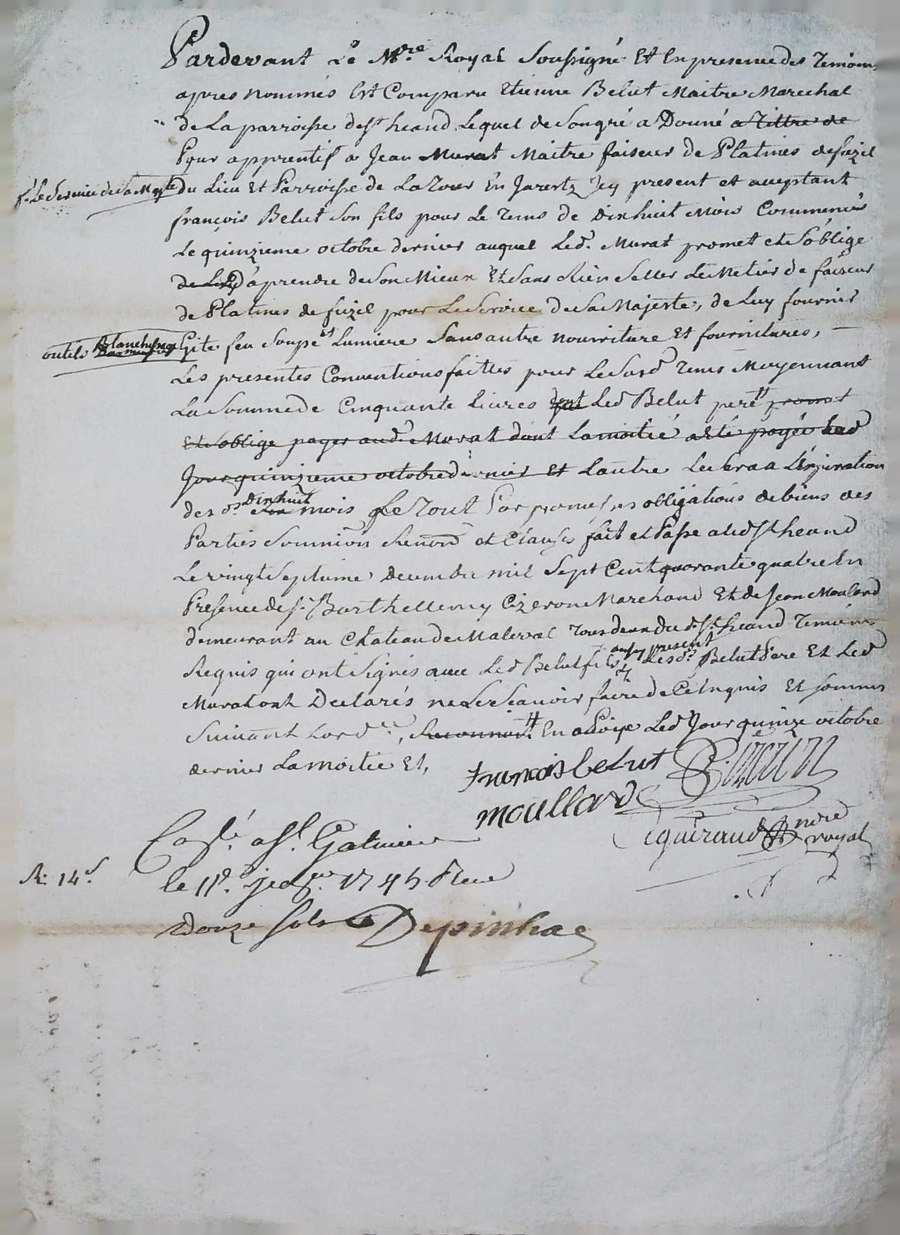 Pardevant Le N.re Royal Soussigné Et En presence des Temoins
apres nommés Est Comparu Etienne Belut Maitre Marechal
de La parroisse de S.t heand Lequel de Son gré a Donné a tittre de
Pour apprentif a Jean Murat Maitre faiseur de Platines de fuzil
p.r Le Service de Sa Maj.te
du Lieu Et Parroisse de La Tour En Jarest Icy present et aceptant
françois Belut Son fils pour Le tems de Dixhuit Mois Commencés
Le quinzieme octobre dernier auquel Led. Murat promet et S'oblige
de Luy d'aprendre de Son Mieux Et Sans Rien Seller Le Metier de faiseur
de Platines de fuzil pour Le Service de Sa Majesté, de Luy fournir
outils Blanchissage
Gite feu Soupe et Lumiere Sans autre nourriture Et fournitures,
Les presentes Conventions faittes pour Le Susd. tems Moyennant
La Somme de Cinquante Livres Led Belut pere promet
Et S'oblige payer aud. Murat dont La moitié a été payée
Jour quinzieme octobre dernier Et Lautre Le Sera a L'expiration
des d.s Dixhuit mois Le Tout Par promes obligations de biens des
Parties Soumiôn Renonô et Clauses fait et Passé aud S.t heand
Le vingt Septieme decembre mil Sept Cent quarante quatre En
Presence de S.r Barthellemy Cizeron Marchand Et de Jean Moulard
demeurant au Chateau de Malerval Tous deux du d. S.t heand Temoins
Requis qui ont Signés avec Led Belut fils aussy present Lesd. Belut Pere Et Led
Murat ont Declarés ne Le Scavoir faire de Ce Enquis Et Sommés
Suivant Lord.ce, En a Reçu Led Jour quinze octobre
dernier La moitié Et,
francois belut
Cizeron
moullard
Ciquéraud nore royal
Con.lé a S.t Galmier
R. 14 s
le 11.e jer 1745 Reçu
Douze sols
Depinhac